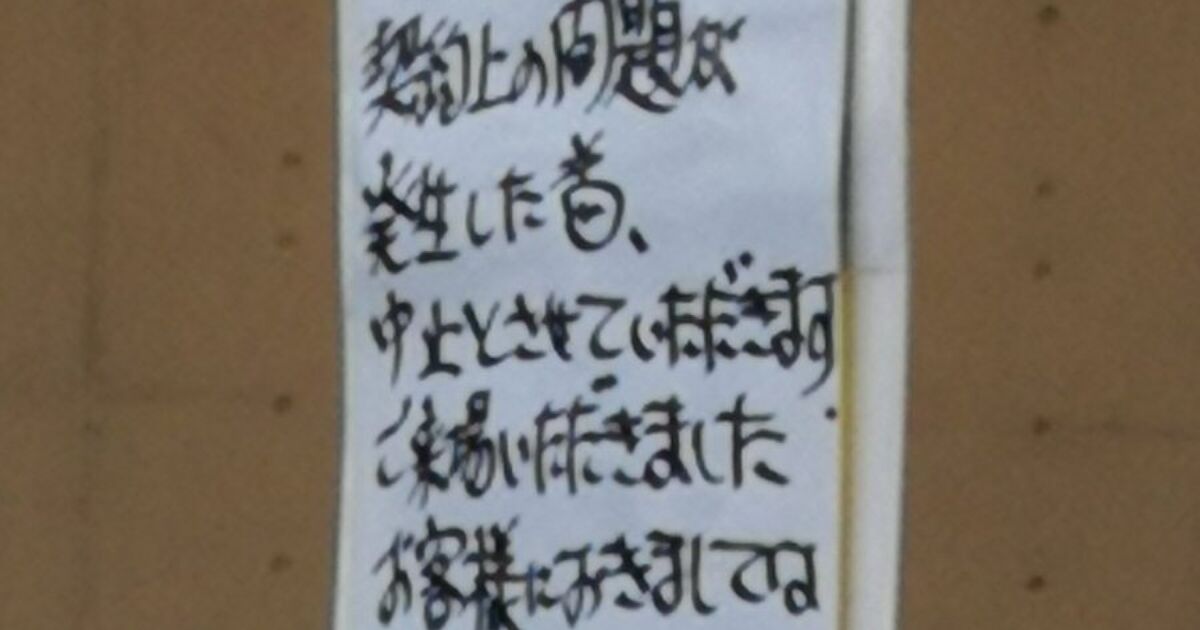 契約上の問題が
発生した為、
中止とさせていただきます
ご来場いただきました
お客様におきましては